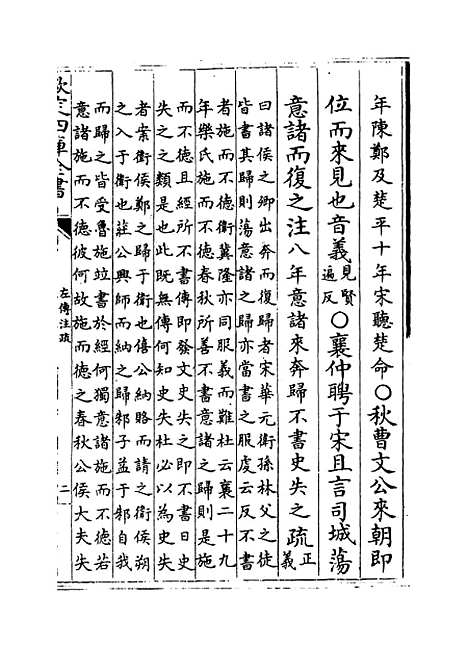 年陳鄭及楚平十年宋聽楚命〇秋曹文公來朝即
位而來見也音義見賢遍反〇襄仲聘于宋且言司城蕩
意諸而復之注八年意諸來奔歸不書史失之疏正義
曰諸侯之卿出奔而復歸者宋華元衛孫林父之徒
皆書其歸則蕩意諸之歸亦當書之服虔云反不書
者施而不德衛冀隆亦同服義而難杜云襄二十九
年樂氏施而不德春秋所善不書意諸之歸則是施
而不德且經所不書傳即發文史失之即不書日史
失之之類是也此既無傳何知史失杜必以為史失
者案衛侯鄭之歸于衛也僖公納賂而請之衛侯朔
之入于衛也莊公興師而納之歸邾子益于邾自我
而歸之皆受魯施竝書於經何獨意諸施而不德若
意諸施而不德彼何故施而德之春秋公侯大夫失
欽定四庫全書
左傳注疏
二